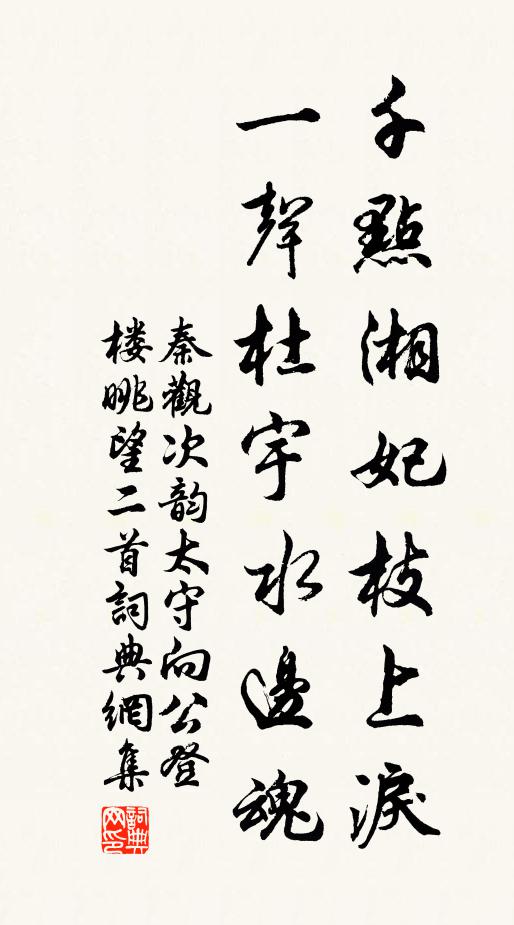 千點湘妃枝上淚
一聲杜宇水邊魂
秦觀次韵太守向公登
楼眺望二首詞典網集
詞典
网印